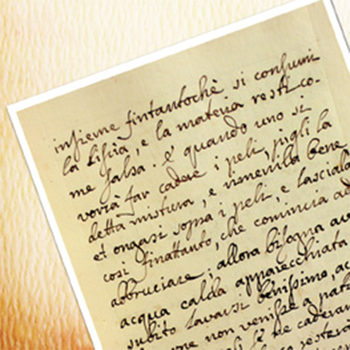 insieme fintantochè si consumi
la lisia, e la materia resti co-
me salsa. è quando uno si
vorrà far cadere i peli, pigli la
detta mistura, e rimenilla bene
et ongasi sopra i peli, e lascialo
così finattanto, che comincia ad
abbruciare; allora bisogna av
acqua calda apparecchiata
subito lavarsi benissimo, ac
non venisse a
cadera